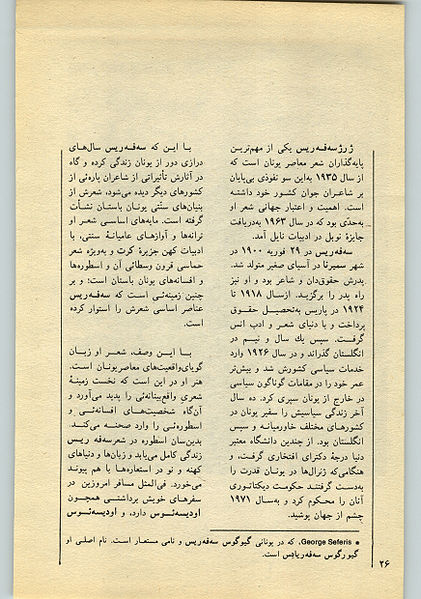 ژرژ سه‌فه‌ریس یکی از مهم‌ترین
پایه‌گذاران شعر معاصر یونان است که
از سال ۱۹۳۵ به‌این سو نفوذی بی‌پایان
بر شاعران جوان کشور خود داشته
است. اهمیت و اعتبار جهانی شعر او
به‌حدّی بود که در سال ۱۹۶۳ به‌دریافت
جایزهٔ نوبل در ادبیات نایل آمد.
سه‌فه‌ریس در ۲۹ فوریه ۱۹۰۰ در
شهر سمیرنا در آسیای صغیر متولد شد.
پدرش حقوق‌دان و شاعر بود و او نیز
راه پدر را برگزید. از سال ۱۹۱۸ تا
۱۹۲۴ در پاریس به‌تحصیل حقوق
پرداخت و با دنیای شعر و ادب انس
گرفت. سپس یك سال و نیم در
انگلستان گذراند و در سال ۱۹۲۶ وارد
خدمات سیاسی کشورش شد و بیش‌تر
عمر خود را در مقامات گوناگون سیاسی
در خارج از یونان سپری کرد. ده سال
آخر زندگی سیاسیش را سفیر یونان در
کشورهای مختلف خاورمیانه و سپس
انگلستان بود. از چندین دانشگاه معتبر
دنیا درجهٔ دکترای افتخاری گرفت، و
هنگامی‌که ژنرال‌ها در یونان قدرت را
به‌دست گرفتند حکومت دیکتاتوری
آنان را محکوم کرد و به‌سال ۱۹۷۱
چشم از جهان پوشید.
با این که سه‌فه‌ریس سال‌های
درازی دور از یونان زندگی کرده و گاه
در آثارش تأثیراتی از شاعران پاره‌ئی از
کشورهای دیگر دیده می‌شود، شعرش از
بنیان‌های سنّتی یونان باستان نشأت
گرفته است. مایه‌های اساسی شعر او
ترانه‌ها و آوازهای عامیانهٔ سنتی، با
ادبیات کهن جزیرهٔ کرت و به‌ویژه شعر
حماسی قرون وسطائی آن و اسطوره‌ها
و افسانه‌های یونان باستان است؛ و بر
چنین زمینه‌ئی است که سه‌فه‌ریس
عناصر اساسی شعرش را استوار کرده
است.
با این وصف، شعر او زبان
گویای‌واقعیت‌های معاصریونان است.
هنر او در این است که نخست زمینهٔ
شعریِ واقع‌بینانه‌ئی را پدید می‌آورد و
آن‌گاه شخصیت‌های افسانه‌ئی و
اسطوره‌ئی را وارد صحنه می‌کند.
بدین‌سان اسطوره در شعرسه‌فه ریس
زندگی کامل می‌یابد و زبان‌ها و دنیاهای
کهنه و نو در استعاره‌ها با هم پیوند
می‌خورد. فی‌المثل مسافر امروزین در
سفرهای خویش برداشتی همچون
اودیسه‌ئوس دارد، و اودیسه‌ئوس
● George Seferis، که در یونانی گیوگوس سه‌فه‌ریس و نامی مستعار است. نام اصلی او
گیورگوس سه‌فه‌ریادِس است.
۲۶